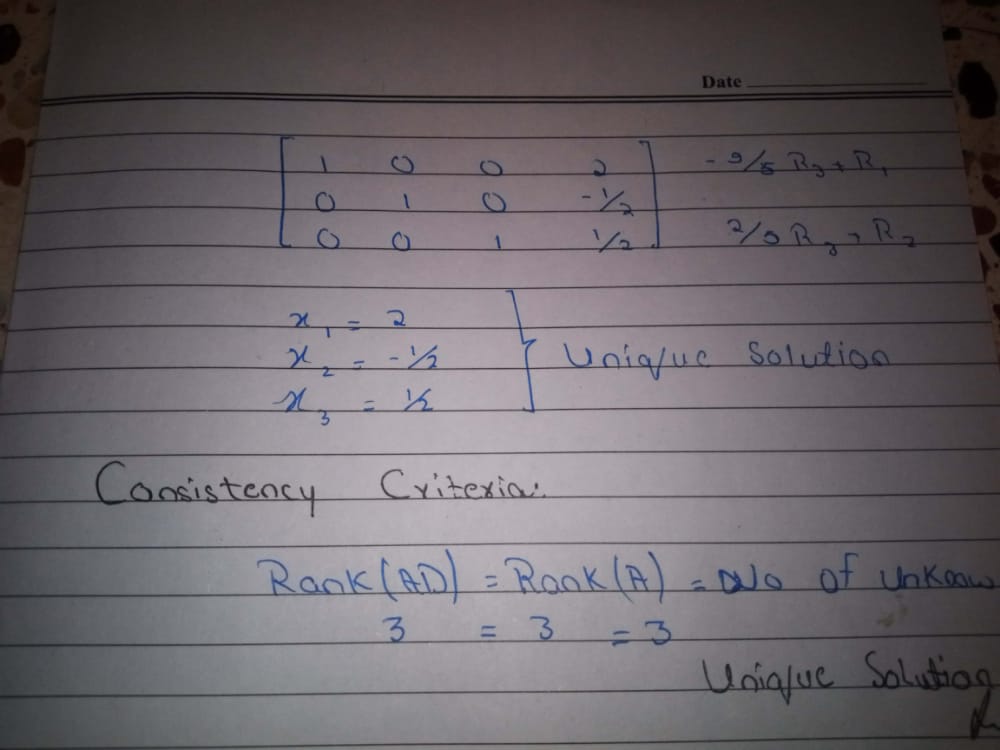 Date
1 0 0 2 - 9/5 R3 + R1
0 1 0 -1/2
0 0 1 1/2 R3 + R2
x1 = 2
x2 = -1/2
x3 = 1/2
Unique Solution
Consistency Criteria:
Rank(AD) = Rank(A) = No of unknow
3 = 3 = 3
Unique Solution